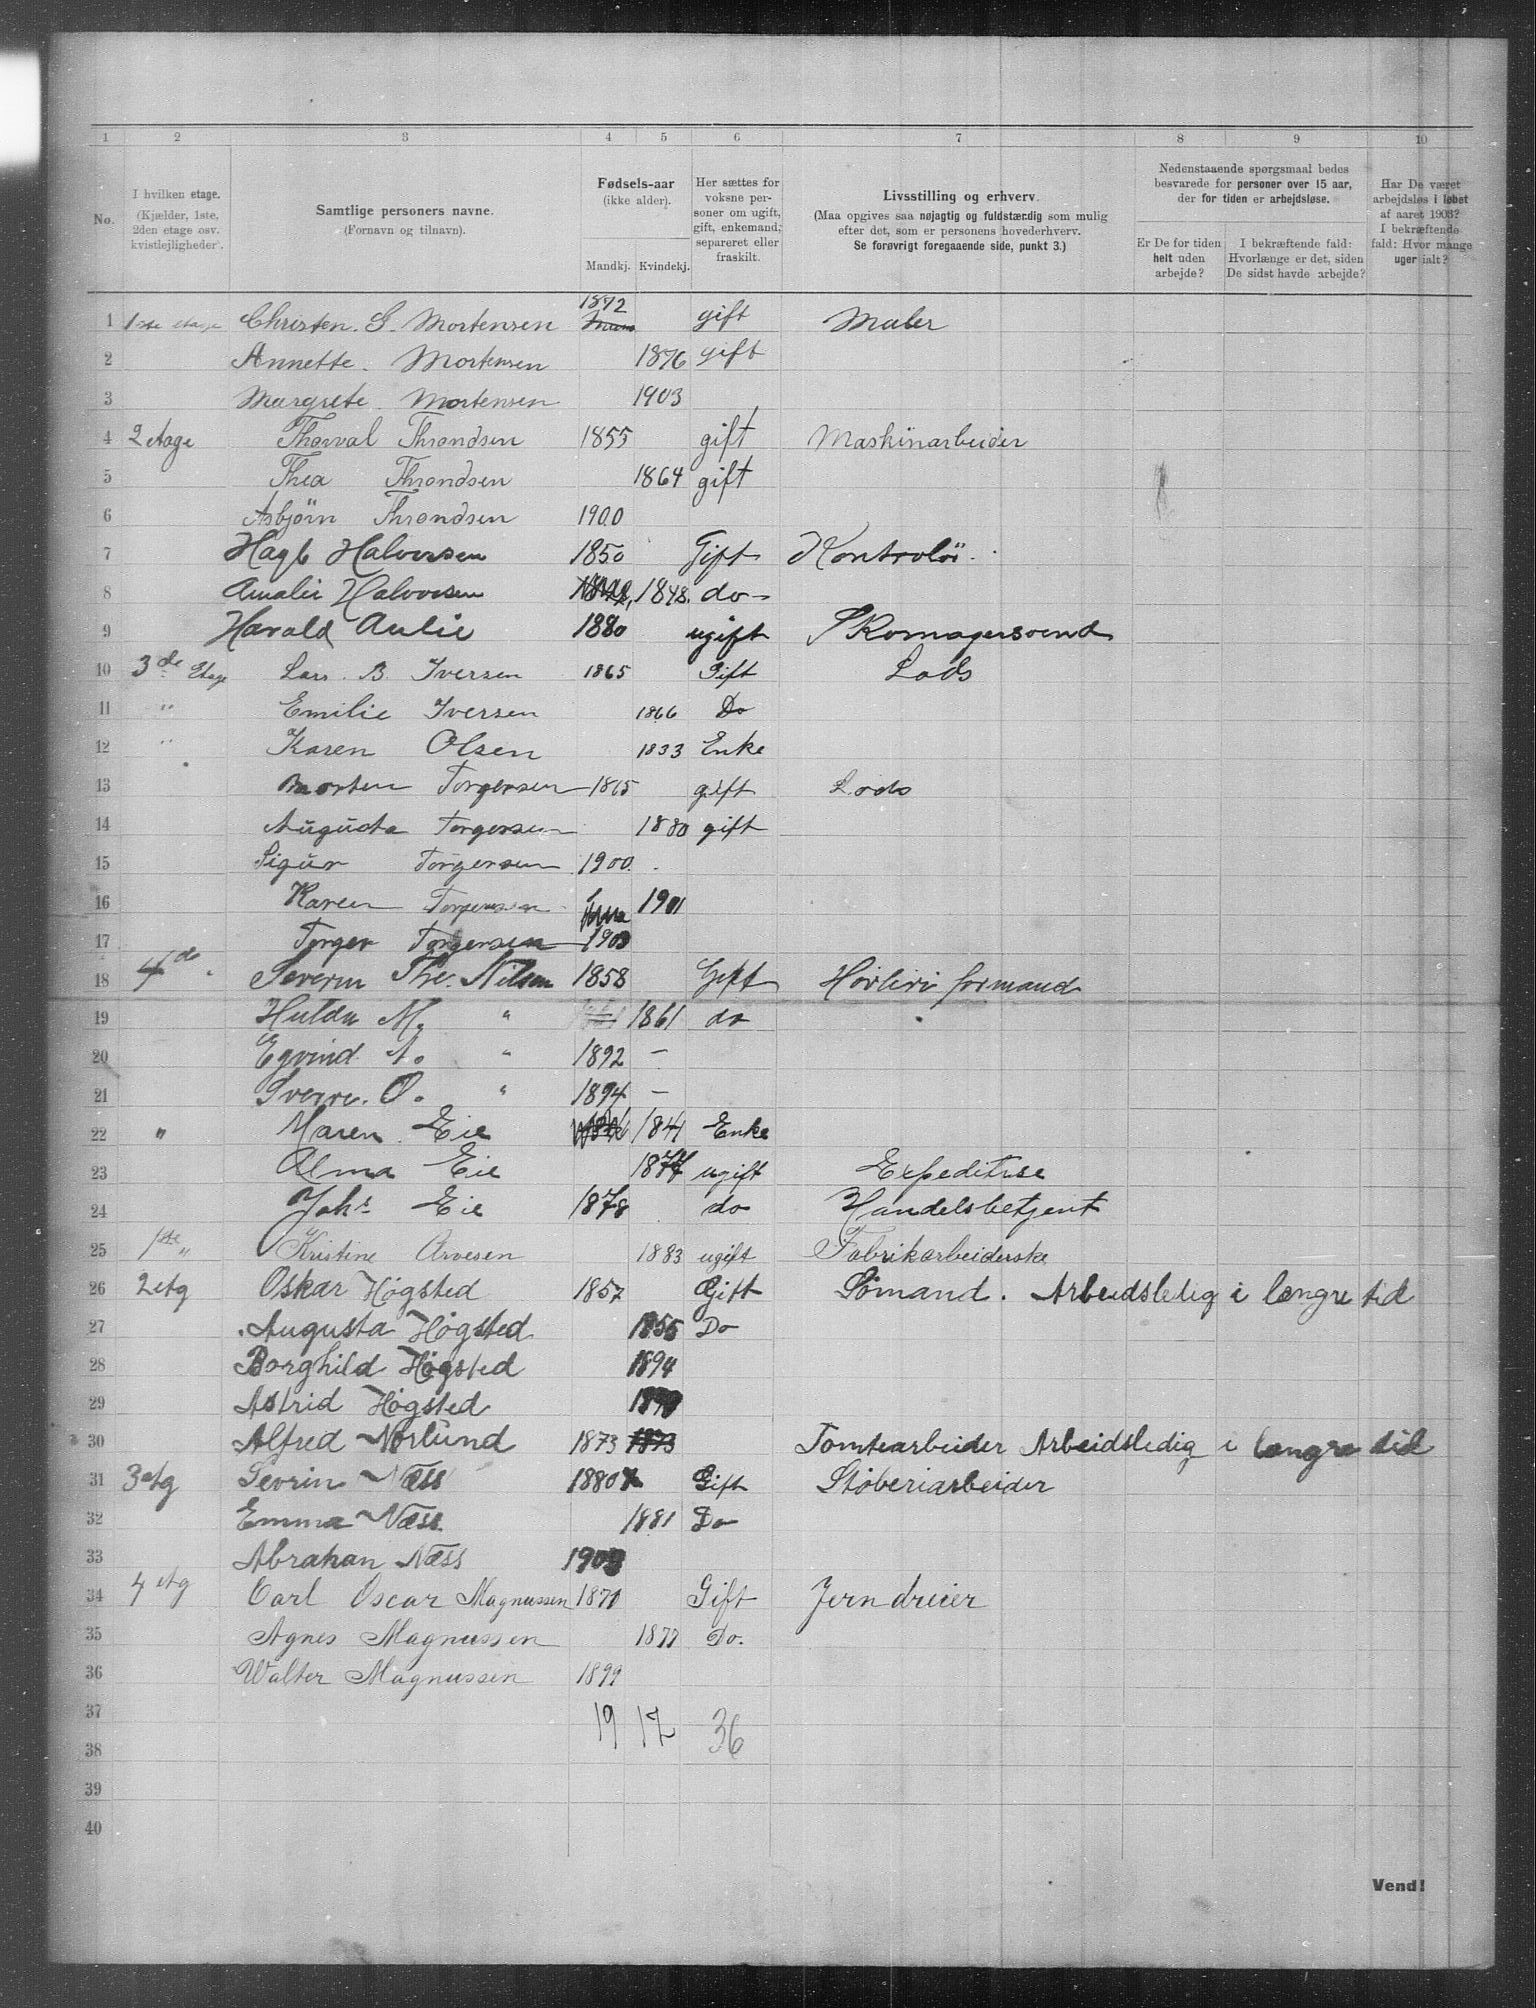 1 2 3 4 5 6 7 8 9 10
No.
I hvilken etage. (Kjælder, 1ste, 2den etage osv. kvistlejligheder.
Samtlige personers navne. (Fornavn og tilnavn).
Fødsels-aar (ikke alder).
Mandkj. Kvindekj.
Her sættes for voksne personer om ugift, gift, enkemand, separeret eller fraskilt.
Livsstilling og erhverv. (Maa opgives saa nøjagtig og fuldstærdig som mulig efter det, som er personens hovederhverv. Se forøvrigt foregaaende side, punkt 3.)
Nedenstaaende spørgsmaal bedes besvarede for personer over 15 aar, der for tiden er arbejdsløse.
Er De for tiden helt uden arbejde?
I bekræftende fald: Hvorlænge er det, siden De sidst havde arbejde?
Har De været arbejdsløs i løbet af aaret 1903? I bekræftende fald: Hvor mange uger ialt?
1 1ste etage Christen. G. Mortensen 1872 gift Maler
2 Annette. Mortensen 1876 gift
3 Margrete. Mortensen 1903
4 2 etage Thorval Throndsen 1855 gift Maskinarbeider
5 Thea Throndsen 1864 gift
6 Asbjörn Throndsen 1900
7 Hagb Halvorsen 1850 Gift Kontrolör.
8 Amalie Halvorsen 1848. do-
9 Harald Aulie 1880 ugift Skomagersvend
10 3de Etage Lars. B. Iversen 1865 Gift Lods
11 " Emilie Iversen 1866 Do
12 " Karen Olsen 1833 Enke
13 Morten Torgersen 1865 gift Lods
14 Augusta Torgersen 1880 gift
15 Sigur Torgersen 1900.
16 Karen Torgersen 1901
17 Torger Torgersen 1903
18 4de " Severin The. Nilsen 1858 Gift Hövleri formand
19 Hulda M. " 1861 do
20 Eyvind A. " 1892 -
21 Sverre. O. " 1894 -
22 " Maren Eie 1841 Enke
23 Alma Eie 1877 ugift Expeditrise
24 Johs Eie 1878 do Handelsbetjent
25 1ste " Kristine Arvesen 1883 ugift Fabrikarbeiderske
26 2 etg Oskar Högsted 1857 Gift Sömand. Arbeidsledig i længre tid
27 Augusta Högsted 1855 Do
28 Borghild Högsted 1894
29 Astrid Högsted
30 Alfred Norlund 1873 1873 Tomtearbeider Arbeidsledig i længre tid
31 3 etg Sevrin Næss 1880 Gift Stöberiarbeider
32 Emma Næss 1881 Do
33 Abrahan Næss 1903
34 4 etg Carl Oscar Magnussen 1871 Gift Jerndreier
35 Agnes Magnussen 1877 Do.
36 Walter Magnussen 1899
37 19 17 36
38
39
40
Vend!